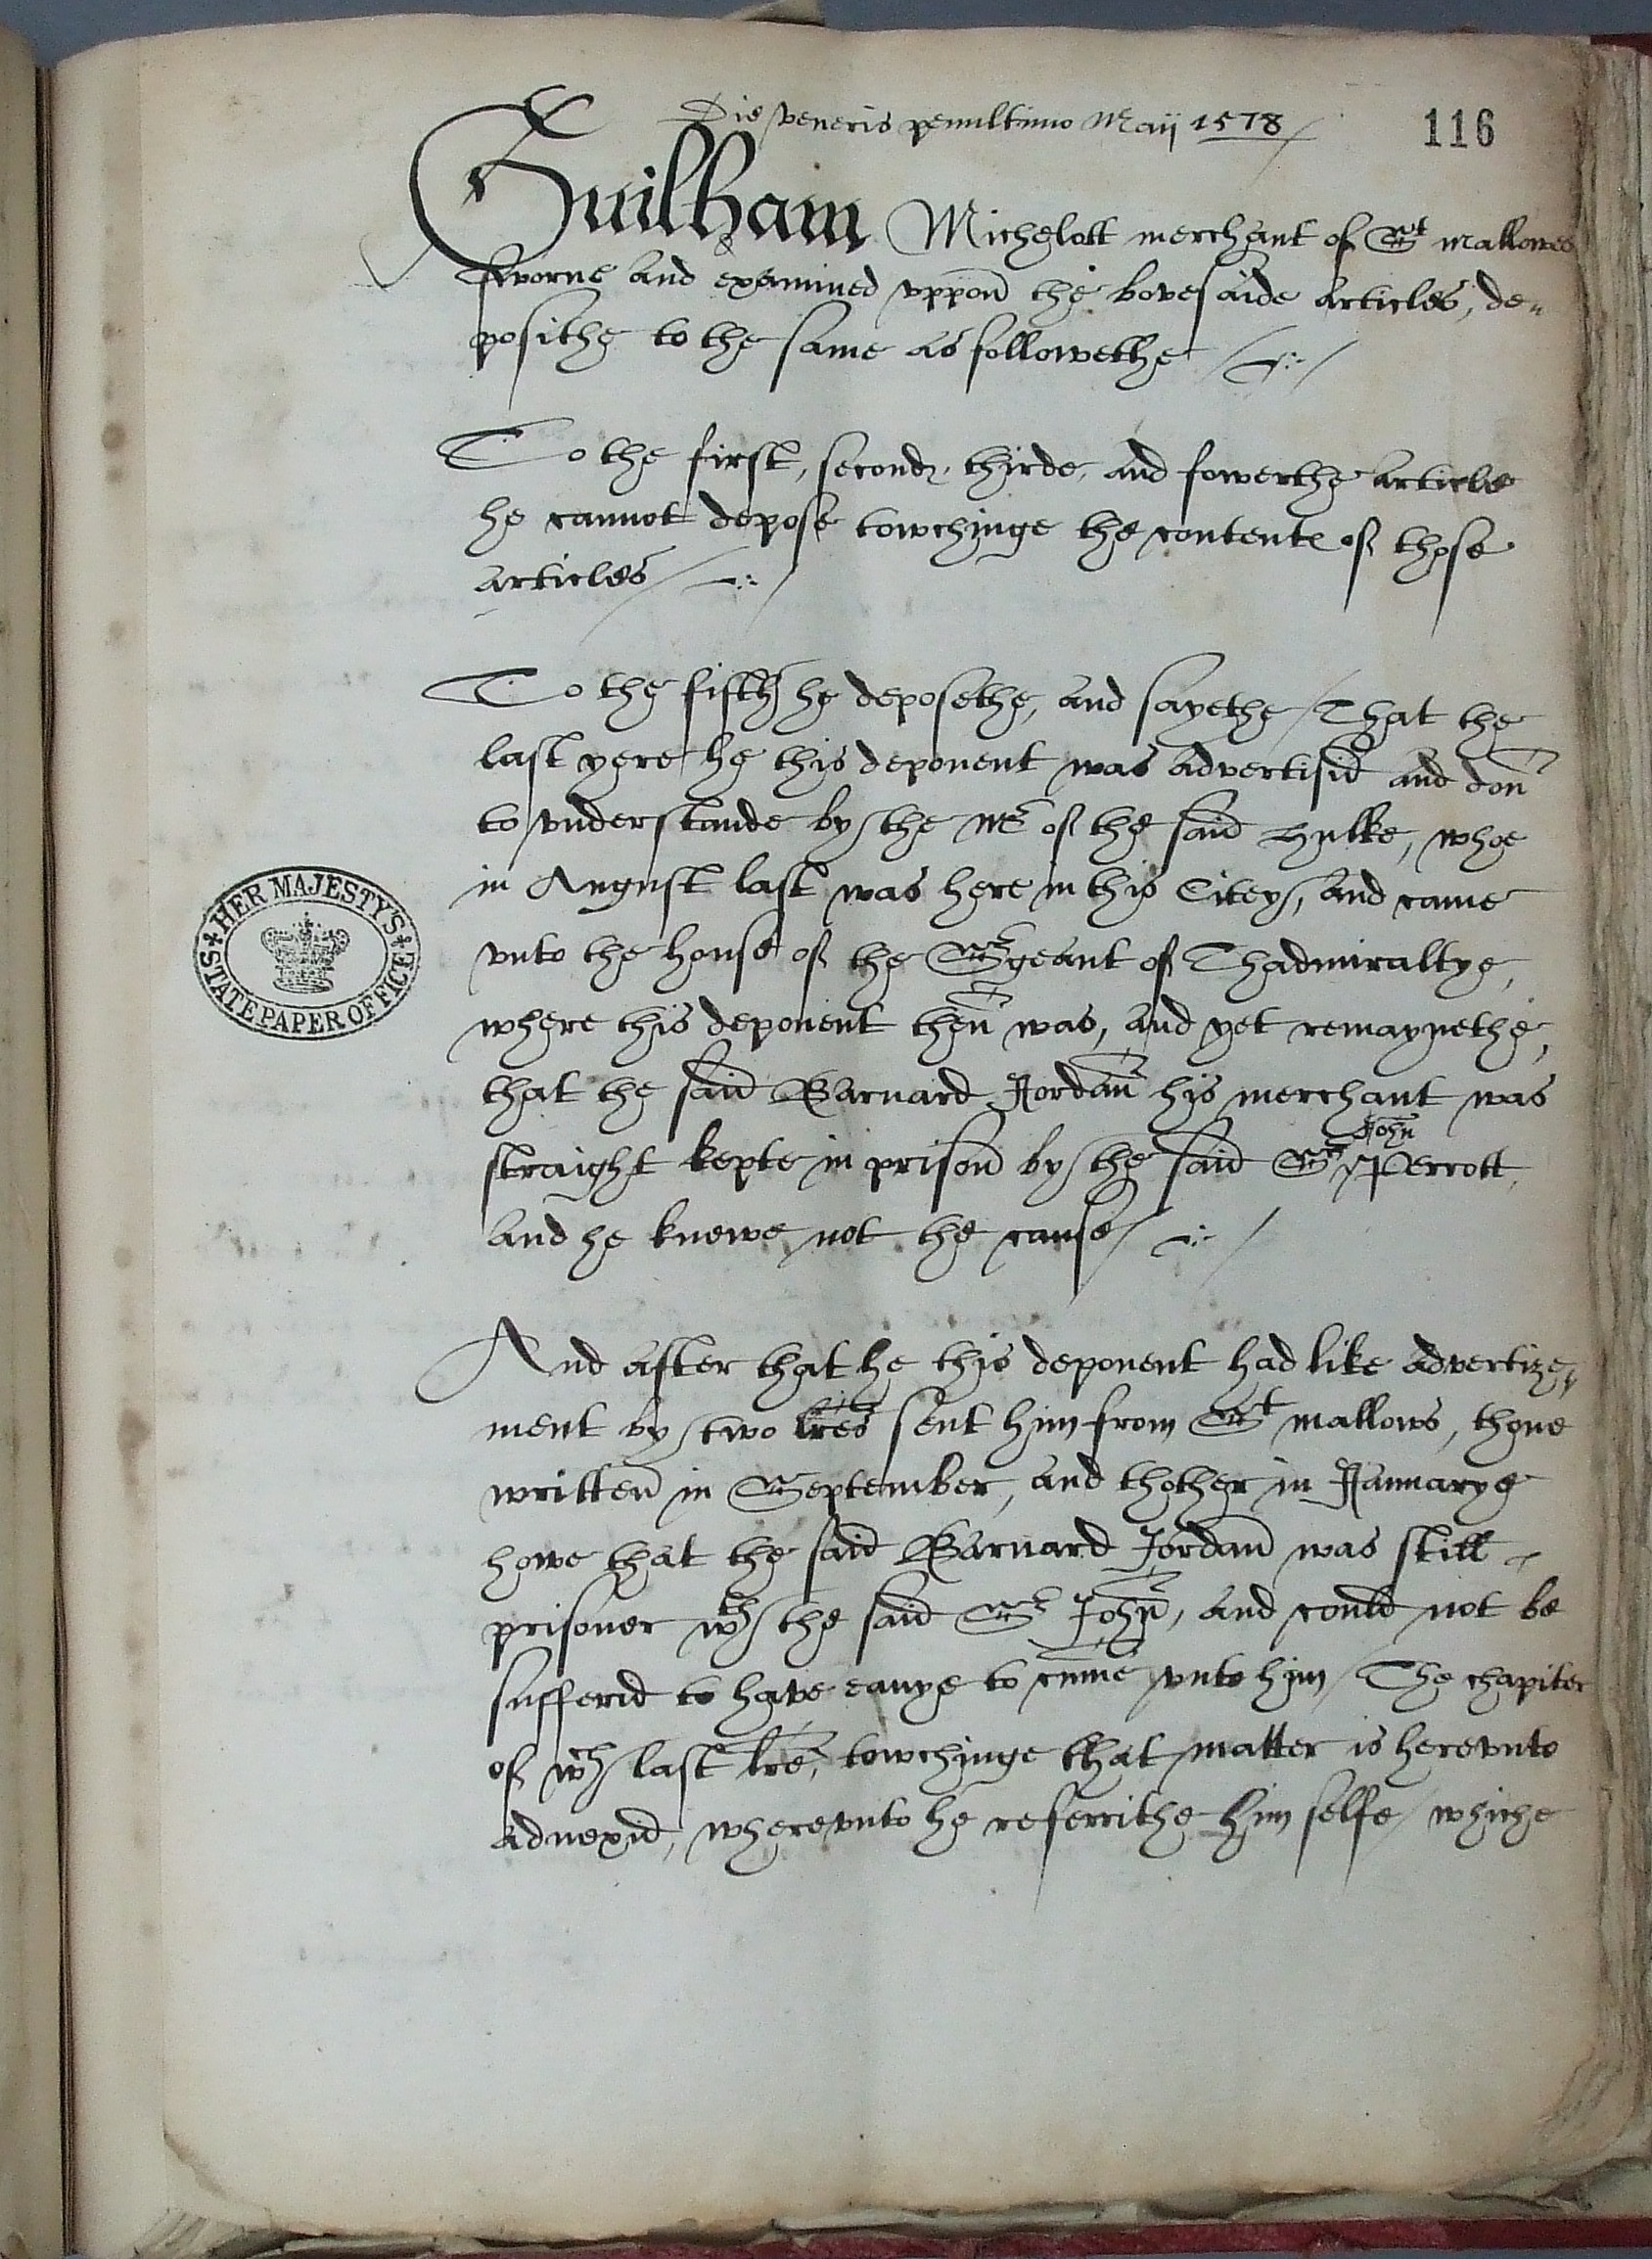 Die veneris penultimo Maij 1578
116
Guilham Michelott merchant of St Mallowes
sworne and examined vppon the bovesaide articles, de„
posithe to the same as followethe
To the first, second, thirde, and fowerthe article
he cannot depose towchinge the contente of those
articles
To the fifth he deposethe, and sayethe / That the
last yere he this deponent was advertisid and don
to vnderstande by the Mr of the said Hulke, whoe
in August last was here in this Citey, and came
vnto the house of the Sergeant of Thadmiraltye,
where this deponent then was, and yet remaynethe,
that the said Barnard Jordan his merchant was
John
straight kepte in prison by the said Sr Perrott
and he knewe not the cause /
And after that he this deponent had like advertize„
ment by two lres sent him from St Mallows, thone
written in September, and thother in Januarye
howe that the said Barnard Jordan was still
prisoner wth the said Sr John, and could not be
sufferid to have eanye to cume vnto him / The chapiter
of wch last lre, towchinge that matter is herevnto
adnexid, wherevnto he referrithe him selfe / whiche
HER MAJESTY'S
STATE PAPER OFFICE